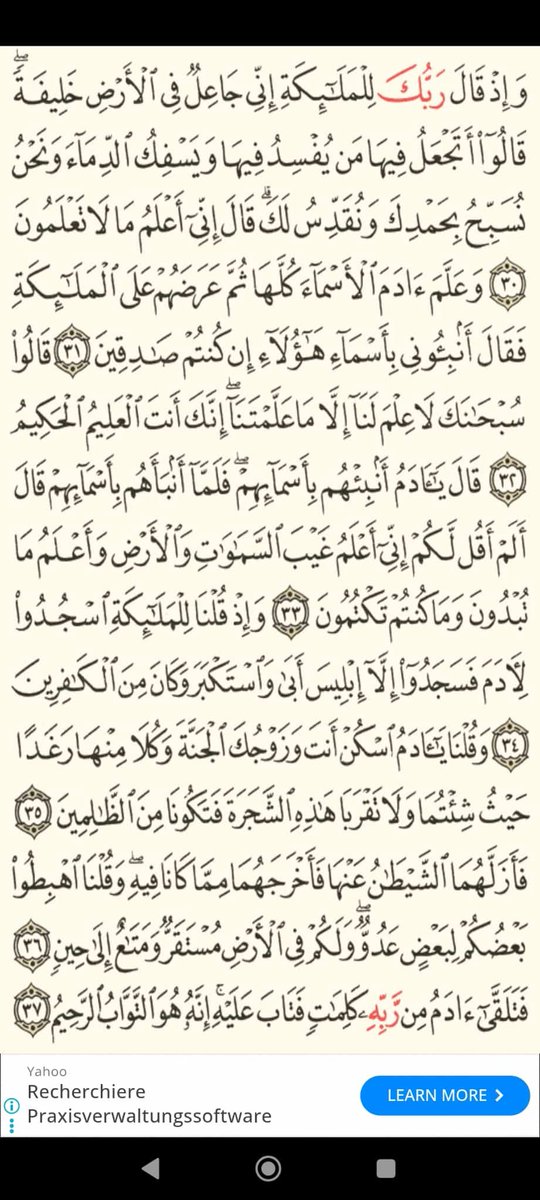 وَإِذْ قَالَ رَبُّكَ لِلْمَلَٰٓئِكَةِ إِنِّى جَاعِلٌ فِى ٱلْأَرْضِ خَلِيفَةً ۖ
قَالُوٓا۟ أَتَجْعَلُ فِيهَا مَن يُفْسِدُ فِيهَا وَيَسْفِكُ ٱلدِّمَآءَ وَنَحْنُ
نُسَبِّحُ بِحَمْدِكَ وَنُقَدِّسُ لَكَ ۖ قَالَ إِنِّىٓ أَعْلَمُ مَا لَا تَعْلَمُونَ
٣٠ وَعَلَّمَ ءَادَمَ ٱلْأَسْمَآءَ كُلَّهَا ثُمَّ عَرَضَهُمْ عَلَى ٱلْمَلَٰٓئِكَةِ
فَقَالَ أَنۢبِـُٔونِى بِأَسْمَآءِ هَٰٓؤُلَآءِ إِن كُنتُمْ صَٰدِقِينَ ٣١ قَالُوا۟
سُبْحَٰنَكَ لَا عِلْمَ لَنَآ إِلَّا مَا عَلَّمْتَنَآ ۖ إِنَّكَ أَنتَ ٱلْعَلِيمُ ٱلْحَكِيمُ
٣٢ قَالَ يَٰٓـَٔادَمُ أَنۢبِئْهُم بِأَسْمَآئِهِمْ ۖ فَلَمَّآ أَنۢبَأَهُم بِأَسْمَآئِهِمْ قَالَ
أَلَمْ أَقُل لَّكُمْ إِنِّىٓ أَعْلَمُ غَيْبَ ٱلسَّمَٰوَٰتِ وَٱلْأَرْضِ وَأَعْلَمُ مَا
تُبْدُونَ وَمَا كُنتُمْ تَكْتُمُونَ ٣٣ وَإِذْ قُلْنَا لِلْمَلَٰٓئِكَةِ ٱسْجُدُوا۟
لِـَٔادَمَ فَسَجَدُوٓا۟ إِلَّآ إِبْلِيسَ أَبَىٰ وَٱسْتَكْبَرَ وَكَانَ مِنَ ٱلْكَٰفِرِينَ
٣٤ وَقُلْنَا يَٰٓـَٔادَمُ ٱسْكُنْ أَنتَ وَزَوْجُكَ ٱلْجَنَّةَ وَكُلَا مِنْهَا رَغَدًا
حَيْثُ شِئْتُمَا وَلَا تَقْرَبَا هَٰذِهِ ٱلشَّجَرَةَ فَتَكُونَا مِنَ ٱلظَّٰلِمِينَ ٣٥
فَأَزَلَّهُمَا ٱلشَّيْطَٰنُ عَنْهَا فَأَخْرَجَهُمَا مِمَّا كَانَا فِيهِ ۖ وَقُلْنَا ٱهْبِطُوا۟
بَعْضُكُمْ لِبَعْضٍ عَدُوٌّ ۖ وَلَكُمْ فِى ٱلْأَرْضِ مُسْتَقَرٌّ وَمَتَٰعٌ إِلَىٰ حِينٍ ٣٦
فَتَلَقَّىٰٓ ءَادَمُ مِن رَّبِّهِۦ كَلِمَٰتٍ فَتَابَ عَلَيْهِ ۚ إِنَّهُۥ هُوَ ٱلتَّوَّابُ ٱلرَّحِيمُ ٣٧
Yahoo
Recherchiere
Praxisverwaltungssoftware
LEARN MORE